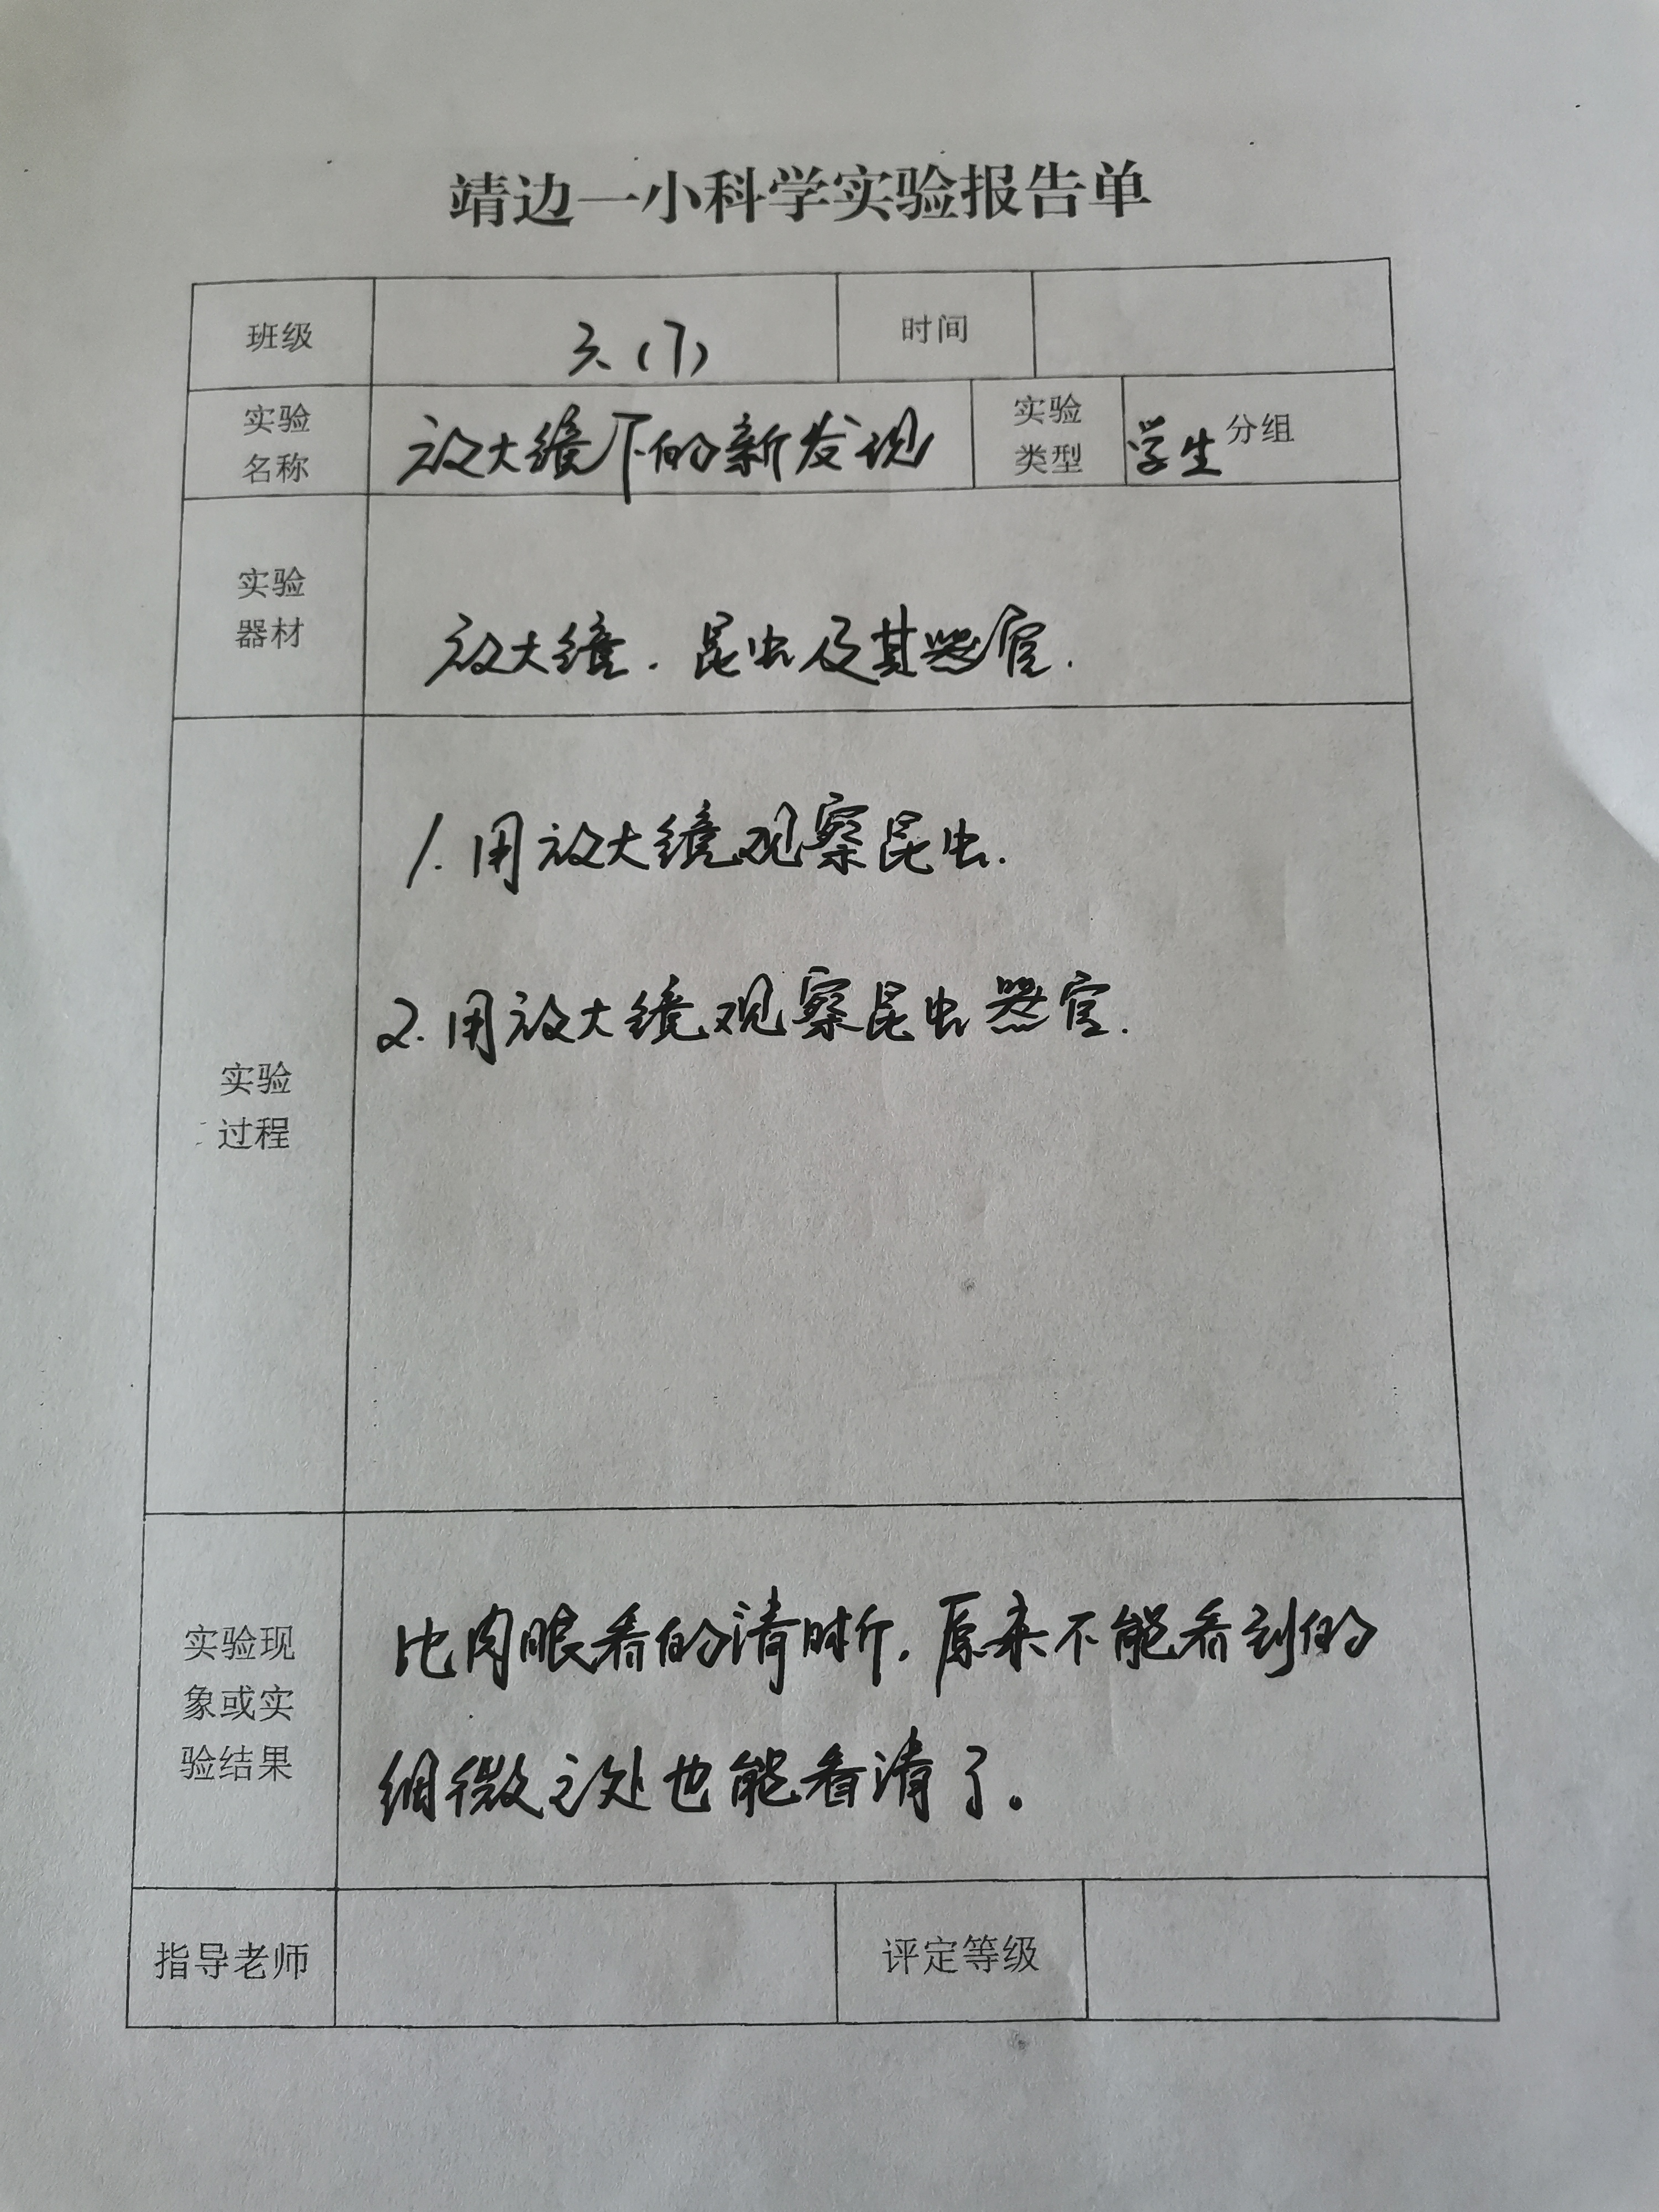 靖边一小科学实验报告单
班级
时间
实验
名称
放大镜下的新发现
实验
类型
学生分组
实验
器材
放大镜.昆虫及其器官.
实验
过程
1.用放大镜观察昆虫.
2.用放大镜观察昆虫器官.
实验现
象或实
验结果
比肉眼看的清晰.原来不能看到的
细微之处也能看清了。
指导老师
评定等级